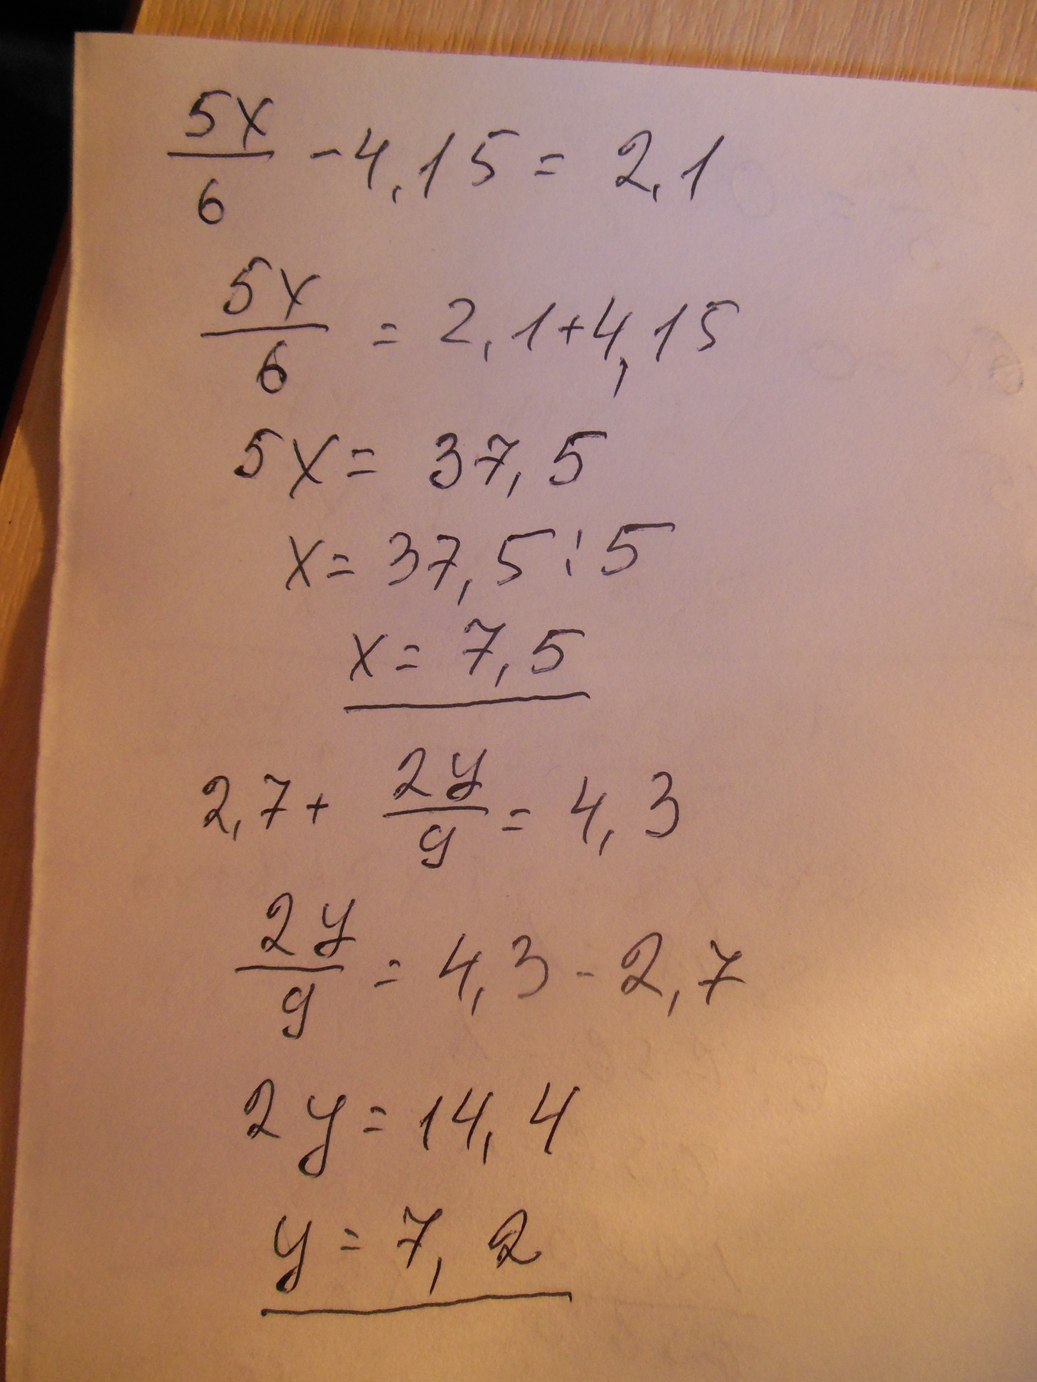 5x/6 - 4,15 = 2,1
5x/6 = 2,1 + 4,15
5x = 37,5
x = 37,5 : 5
x = 7,5
2,7 + 2y/9 = 4,3
2y/9 = 4,3 - 2,7
2y = 14,4
y = 7,2